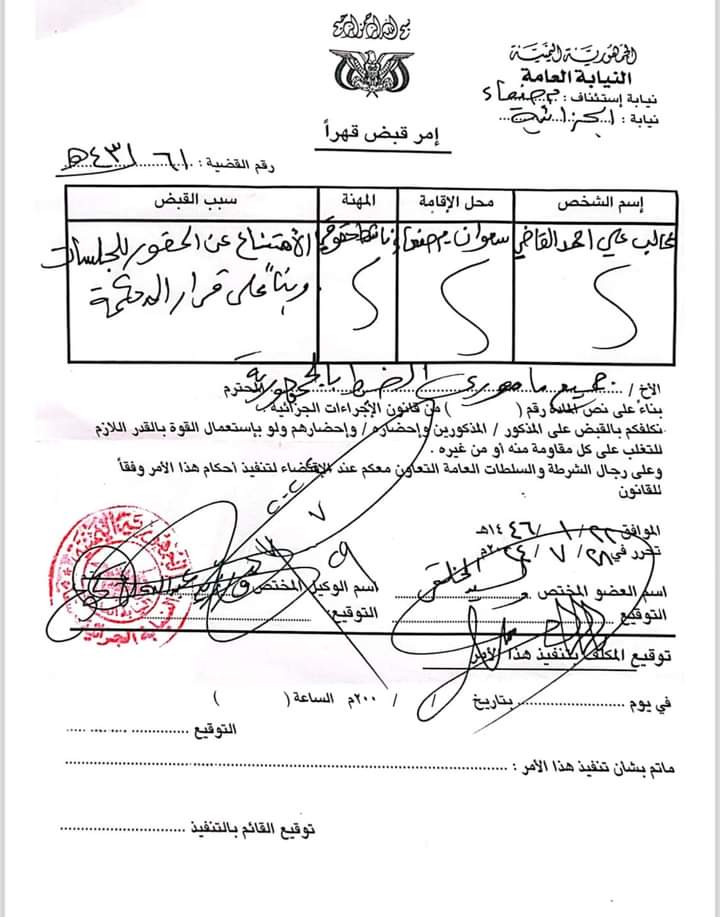 بسم الله الرحمن الرحيم
الجمهورية اليمنية
النيابة العامة
نيابة إستئناف : م صنعاء
نيابة : الجزائية
إمر قبض قهراً
رقم القضية : ٦١ / ٤٣١هـ
إسم الشخص محل الإقامة المهنة سبب القبض
غالب علي احمد القاضي سعوان م صنعاء ناشط حقوقي الأمتناع عن الحضور للجلسات
وبناءً على قرار المحكمة
الأخ / جميع مأموري الضبط بالجمهورية المحترم
بناء على نص المادة رقم ( ) من قانون الإجراءات الجزائية .
نكلفكم بالقبض على المذكور / المذكورين وإحضاره / وإحضارهم ولو بإستعمال القوة بالقدر اللازم
للتغلب على كل مقاومة منه أو من غيره .
وعلى رجال الشرطة والسلطات العامة التعاون معكم عند الإقتضاء لتنفيذ أحكام هذا الأمر وفقاً
للقانون
الموافق ٢٢ / ١ / ١٤٤٦هـ
تحرر في ٢٨ / ٧ / ٢٠٢٤م
إسم العضو المختص اسم الوكيل المختص
التوقيع التوقيع
توقيع المكلف بتنفيذ هذا الأمر
في يوم بتاريخ / / ٢٠٠م الساعة ( )
التوقيع
ماتم بشان تنفيذ هذا الأمر :
توقيع القائم بالتنفيذ